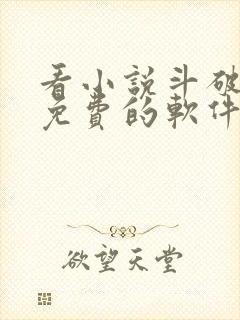 看小說斗破
免費的軟件
欲望天堂